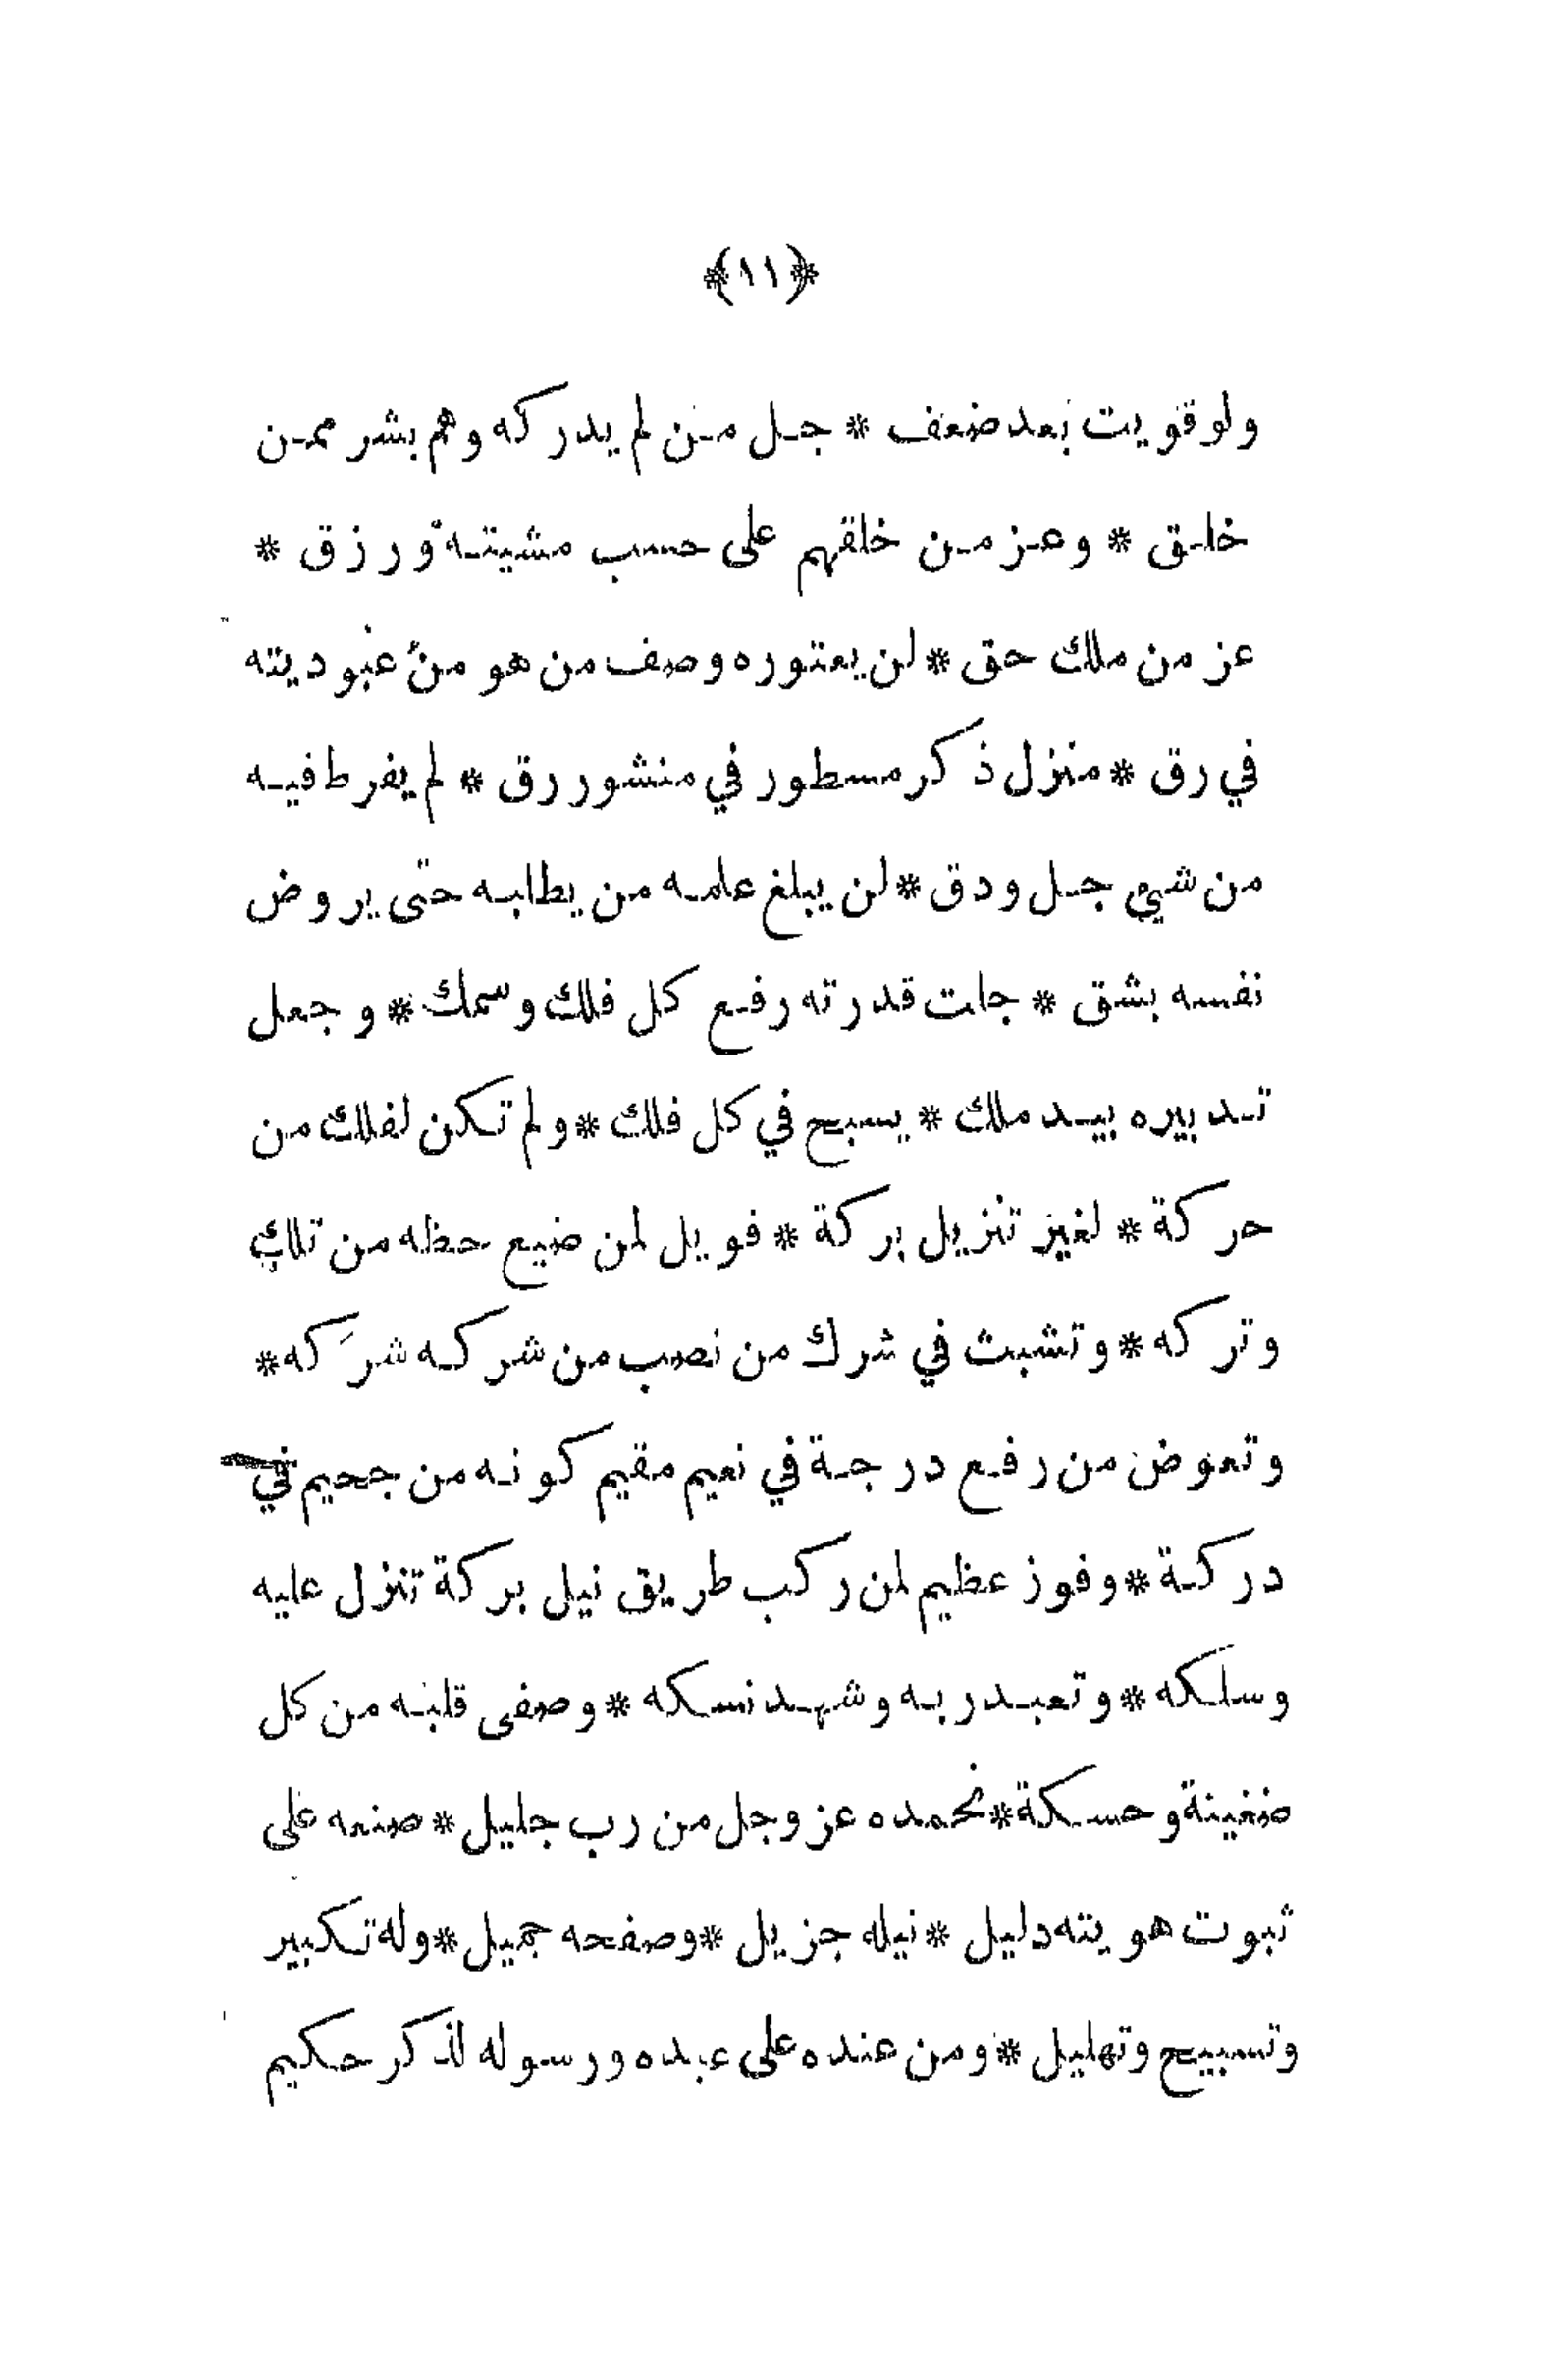 ﴿١١﴾
ولو قويت بعد ضعف * جل من لم يدركه وهم بشر ممن
خلق * وعز من خلقهم على حسب مشيته ورزق *
عز من ملك حق * لن يعتوره وصف من هو من عبوديته
في رق * منزل ذكر مسطور في منشور رق * لم يفرط فيه
من شيء جل ودق * لن يبلغ علمه من يطلبه حتى يروض
نفسه بشق * جلت قدرته رفع كل فلك وسمك * وجعل
تدبيره بيد ملك * يسبح في كل فلك * ولم تكن لفلك من
حركة * لغير تنزيل بركة * فويل لمن ضيع حظه من تلك
وتركه * وتشبث في شرك من نصب من شركه شرَكه *
وتعوض من رفع درجة في نعيم مقيم كونه من جحيم في
دركة * وفوز عظيم لمن ركب طريق نيل بركة تنزل عليه
وسلكه * وتعبد ربه وشهد نسكه * وصفى قلبه من كل
ضغينة وحسكة * نحمده عز وجل من رب جليل * صنعه على
ثبوت هويته دليل * نيله جزيل * وصفحه جميل * وله تكبير
وتسبيح وتهليل * ومن عنده على عبده ورسوله لذكر حكيم